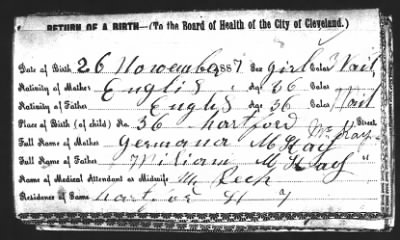 RETURN OF A BIRTH—(To the Board of Health of the City of Cleveland.)
Date of Birth 26 November 1887 Sex girl Color Vait
Nativity of Mother Englis Age 36 Color
Nativity of Father Englis Age 36 Color Vait
Place of Birth (of child) No. 36 Hartford Street
Full Name of Mother Germana McKay Mc Kay
Full Name of Father William McKay "
Name of Medical Attendant or Midwife Mr
Residence of Same